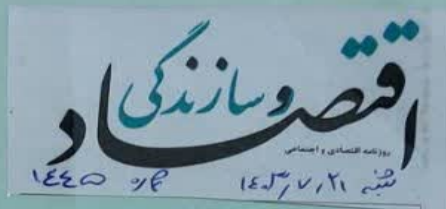 اقتصاد و سازندگی
روزنامه اقتصادی و اجتماعی
شنبه ۱۴۰۳/۷/۲۱ شماره ۱۴۴۵